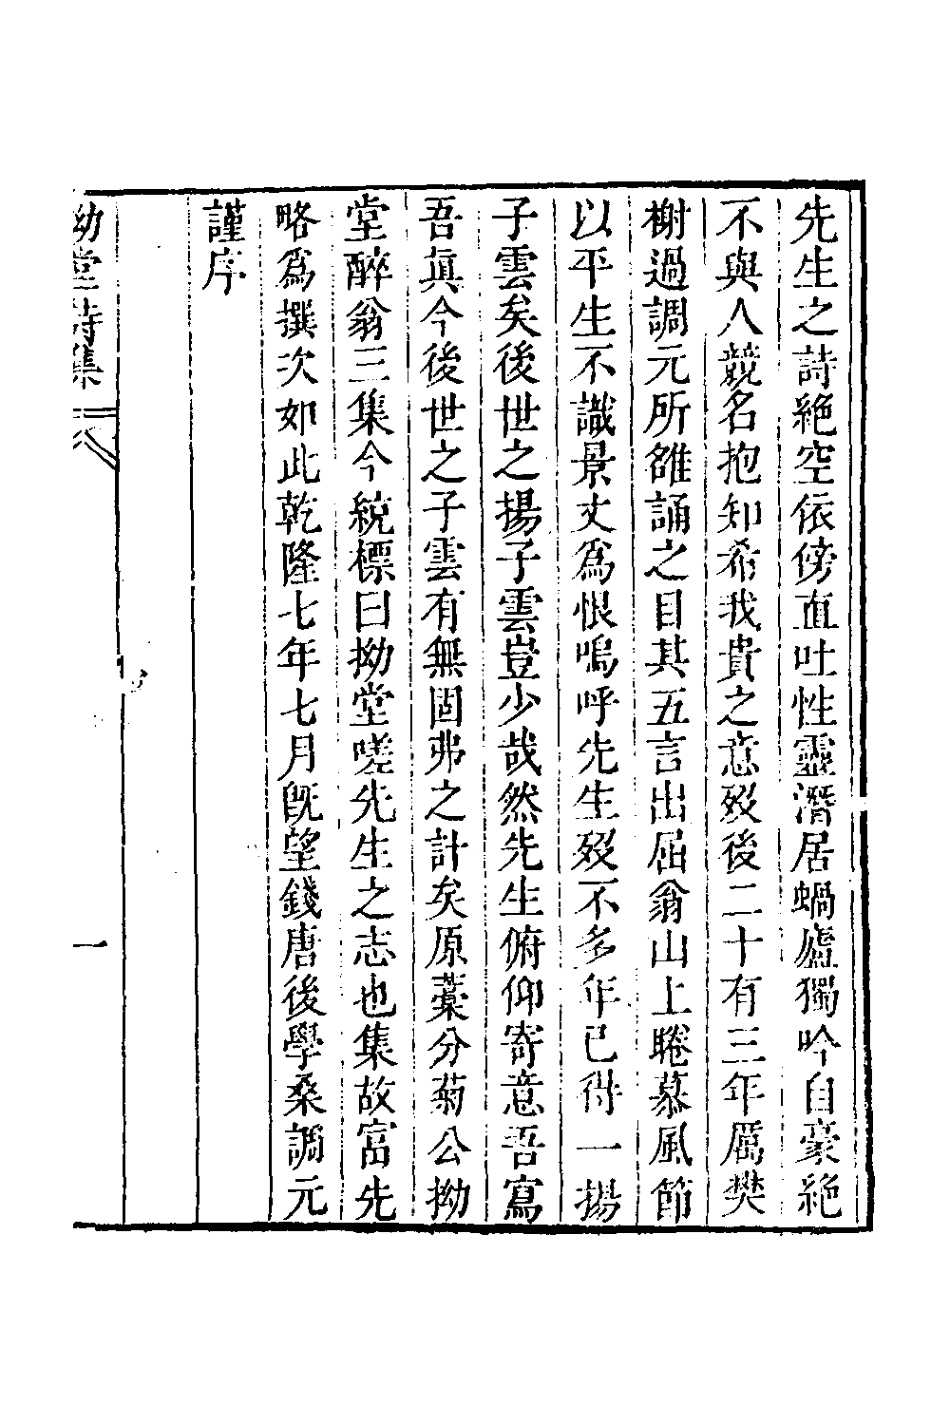 先生之詩絶空依傍直吐性靈潛居蝸廬獨吟自豪絶
不與人競名抱知希我貴之意歿後二十有三年厲樊
榭過調元所雒誦之目其五言出屈翁山上睠慕風節
以平生不識景丈爲恨嗚呼先生歿不多年已得一揚
子雲矣後世之揚子雲豈少哉然先生俯仰寄意吾寫
吾眞今後世之子雲有無固弗之計矣原藁分菊公拗
堂醉翁三集今統標曰拗堂嗟先生之志也集故富先
略爲撰次如此乾隆七年七月旣望錢唐後學桑調元
謹序
拗堂詩集
一